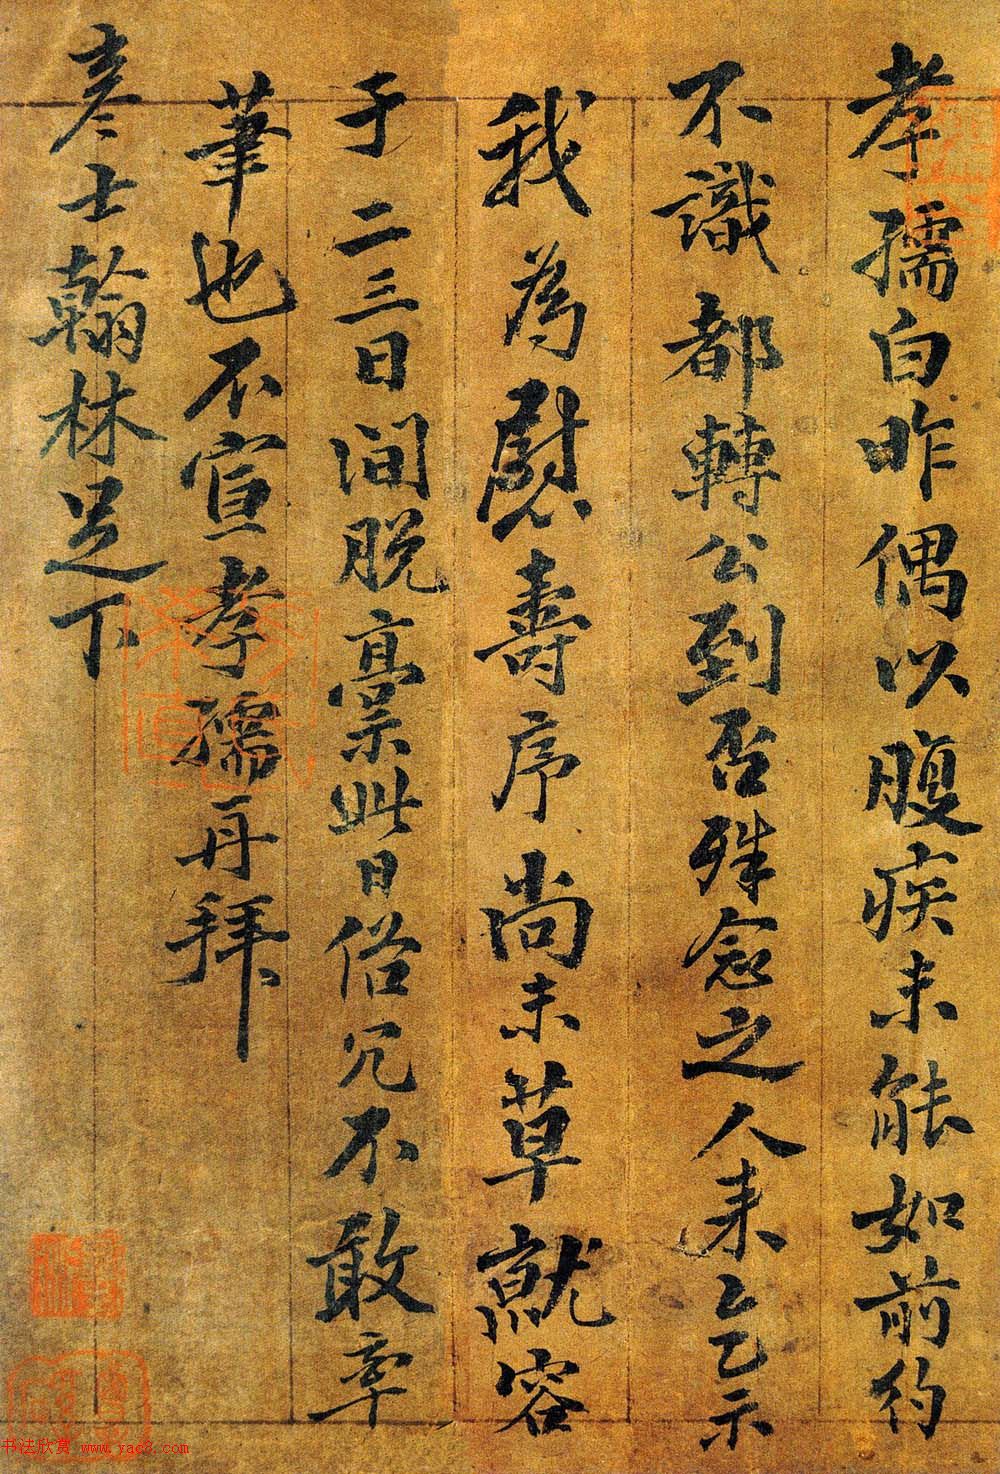 孝孺白昨偶以腹疾未能如前約
不識都轉公到否殊念之人来乞示
我為慰壽序尚未草就容
于二三日间脱稾此日俗冗不敢率
筆也不宣孝孺再拜
彦士翰林足下
书法欣赏 www.yac8.com